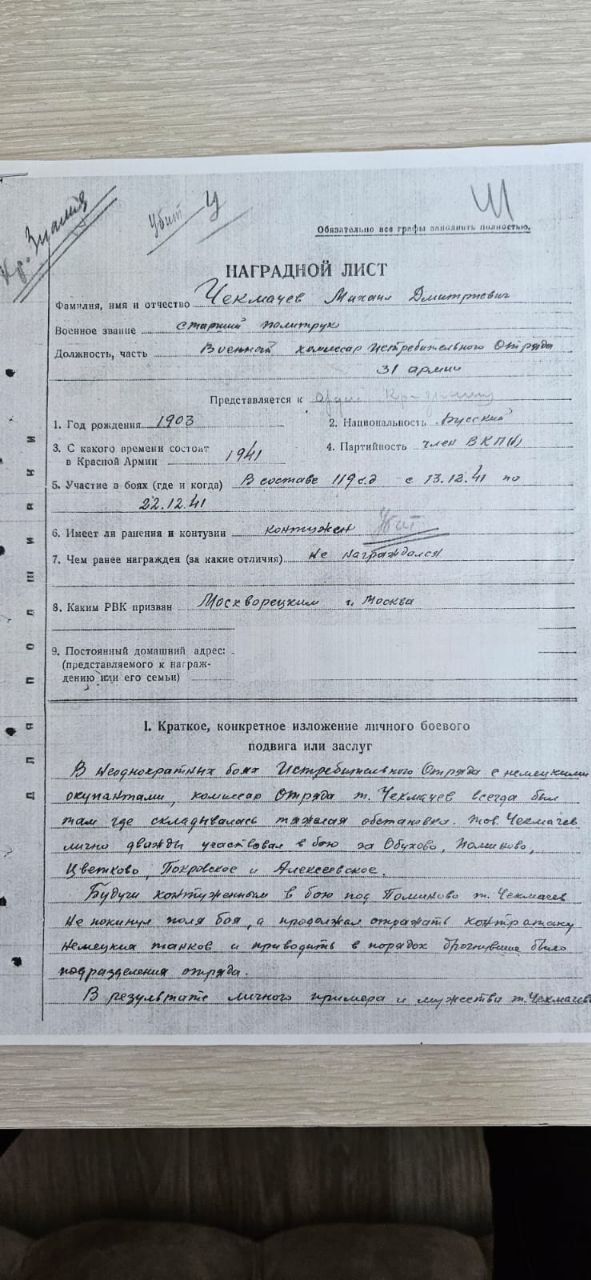 Кр. Знамя
Убит
Обязательно все графы заполнить полностью.
НАГРАДНОЙ ЛИСТ
Фамилия, имя и отчество Чекмачев Михаил Дмитриевич
Военное звание старший политрук
Должность, часть Военный комиссар Истребительного Отряда
31 армии
Представляется к
1. Год рождения 1903 2. Национальность Русский
3. С какого времени состоит
в Красной Армии 1941 4. Партийность член ВКП(б)
5. Участие в боях (где и когда) В составе 119 с.д с 13.12.41 по
22.12.41
6. Имеет ли ранения и контузии контужен Убит
7. Чем ранее награжден (за какие отличия) Не награждался
8. Каким РВК призван Москворецким г. Москва
9. Постоянный домашний адрес:
(представляемого к награж-
дению или его семьи)
I. Краткое, конкретное изложение личного боевого
подвига или заслуг
В неоднократных боях Истребительного Отряда с немецкими
окупантами, комиссар Отряда т. Чекмачев всегда был
там где складывалась тяжелая обстановка. тов. Чекмачев
лично дважды участвовал в бою за Обухово, Поминово,
Цветково, Покровское и Алексеевское.
Будучи контуженным в бою под Поминово т. Чекмачев
не покинул поля боя, а продолжал отражать контратаку
немецких танков и приводить в порядок дрогнувшие было
подразделения отряда.
В результате личного примера и мужества т. Чекмачева